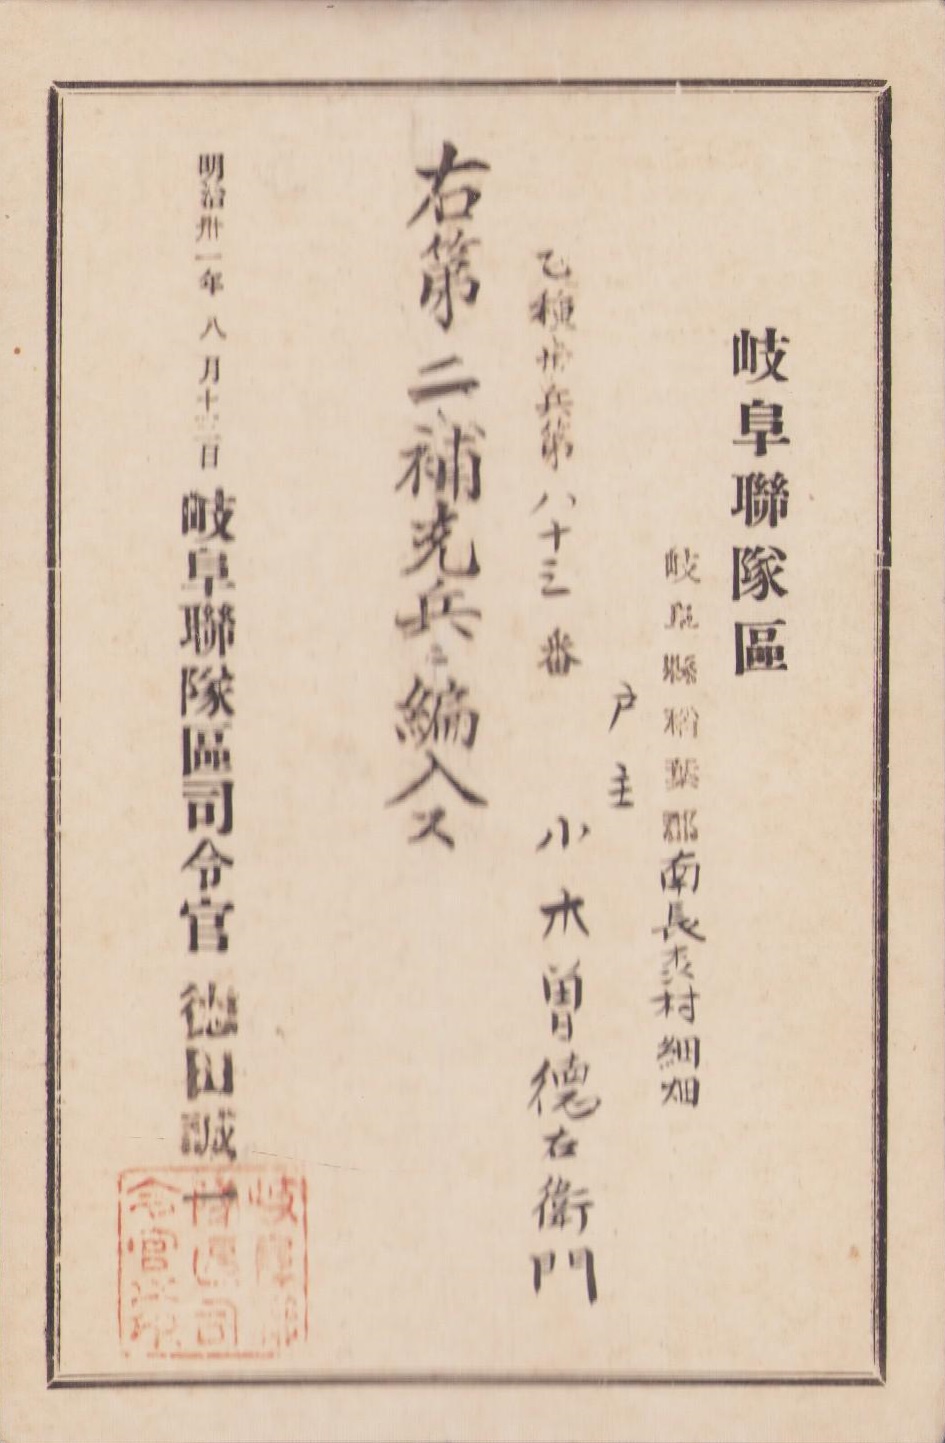 岐阜聯隊區
岐阜縣稲葉郡南長森村細畑
戸主
乙種歩兵第八十三番
小木曽德右衛門
右第二補充兵ニ編入ス
明治卅一年八月十三日
岐阜聯隊區司令官 德田誠一
岐阜聯
隊區司
令官之印